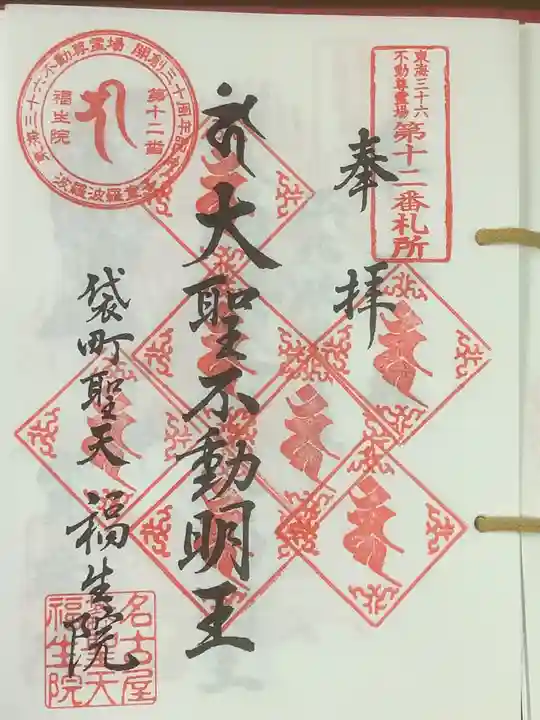 東海三十六
不動尊霊場
第十二番札所
奉拝
大聖不動明王
袋町聖天 福生院
東海三十六不動尊霊場 開創三十周年
第十二番
福生院
波羅波羅
名古屋
聖天
福生院